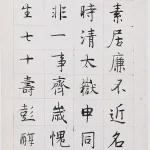 素居廉不近名
時清太嶽申同
非一事齊歲愧
生七十壽彭